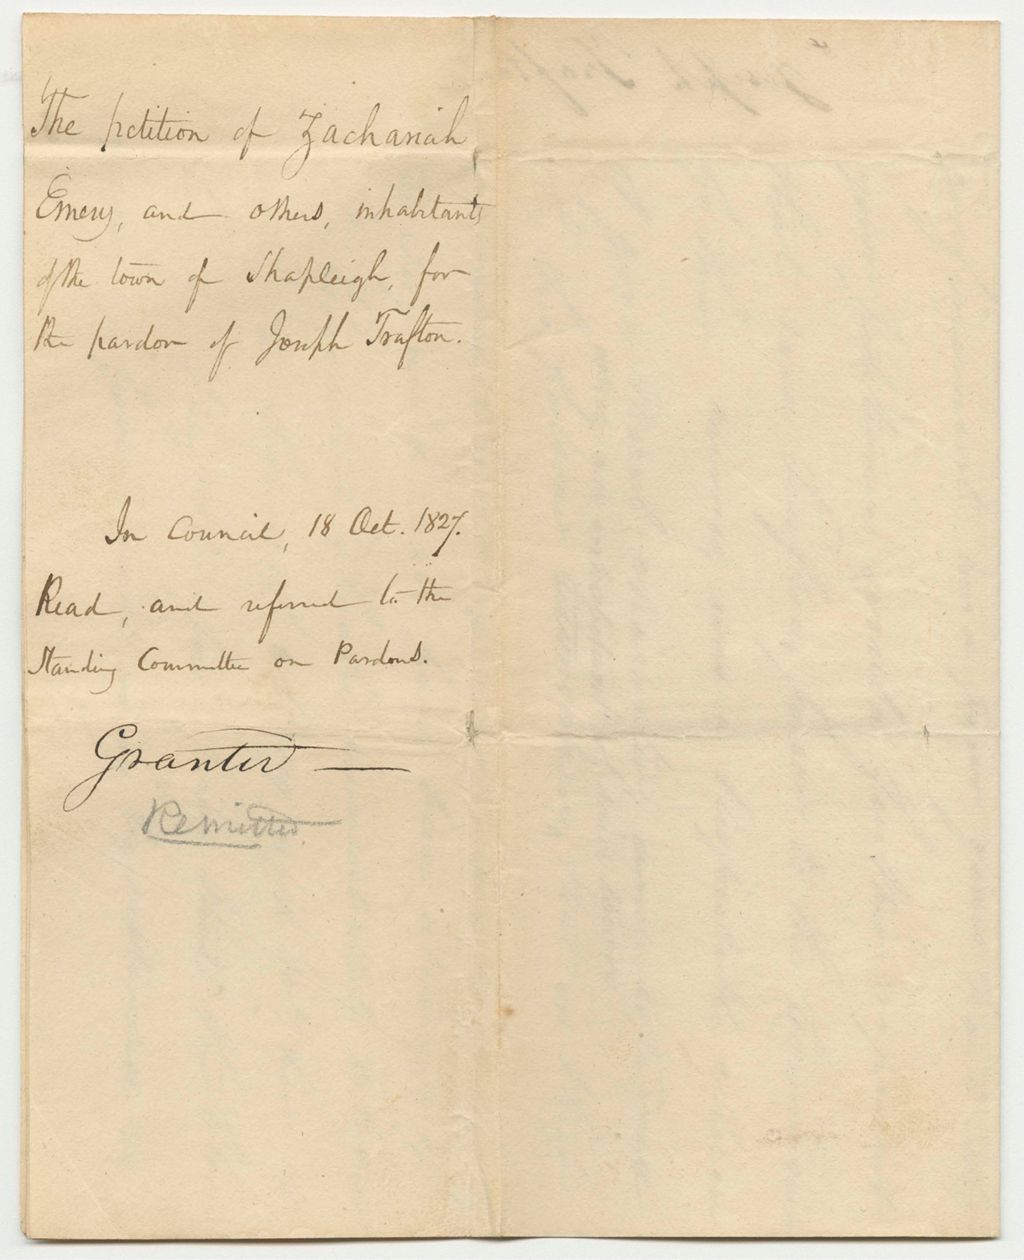 The petition of Zachariah
Emery, and others, inhabitants
of the town of Shapleigh, for
the pardon of Joseph Trafton.
In Council, 18 Oct. 1827.
Read, and referred to the
Standing Committee on Pardons.
Granted
Remitted